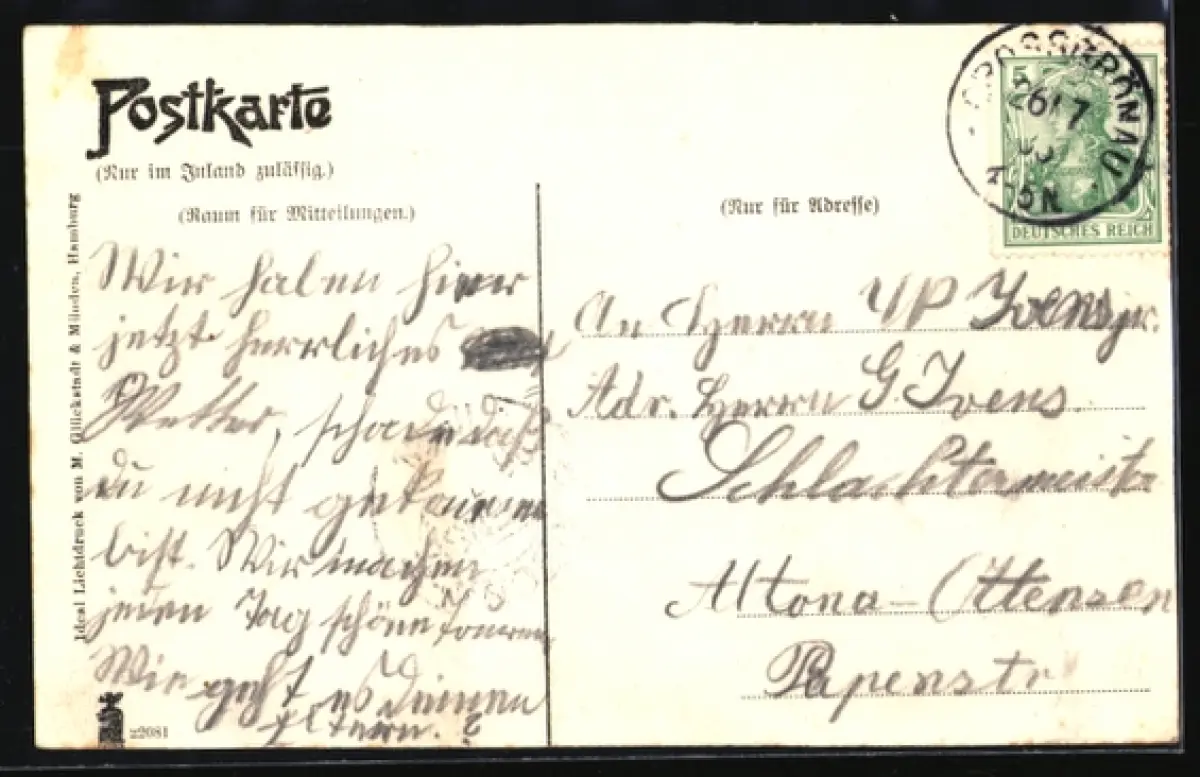 Postkarte
(Nur im Inland zulässig.)
(Raum für Mitteilungen.)
(Nur für Adresse)
Ideal Lichtdruck von M. Glückstadt & Münden, Hamburg
5
DEUTSCHES REICH
GROSSGRÖNAU
26 7
-5N
Wir haben hier
jetzt herrliches
Wetter, schade daß
du nicht gekommen
bist. Wir machen
jeden Tag schöne Touren
Wie geht es Deinen
Eltern. ?
z2081
An Herrn Ivens jr.
Adr. Herrn G Ivens.
Schlachtermeister
Altona-Ottensen
Papenstr